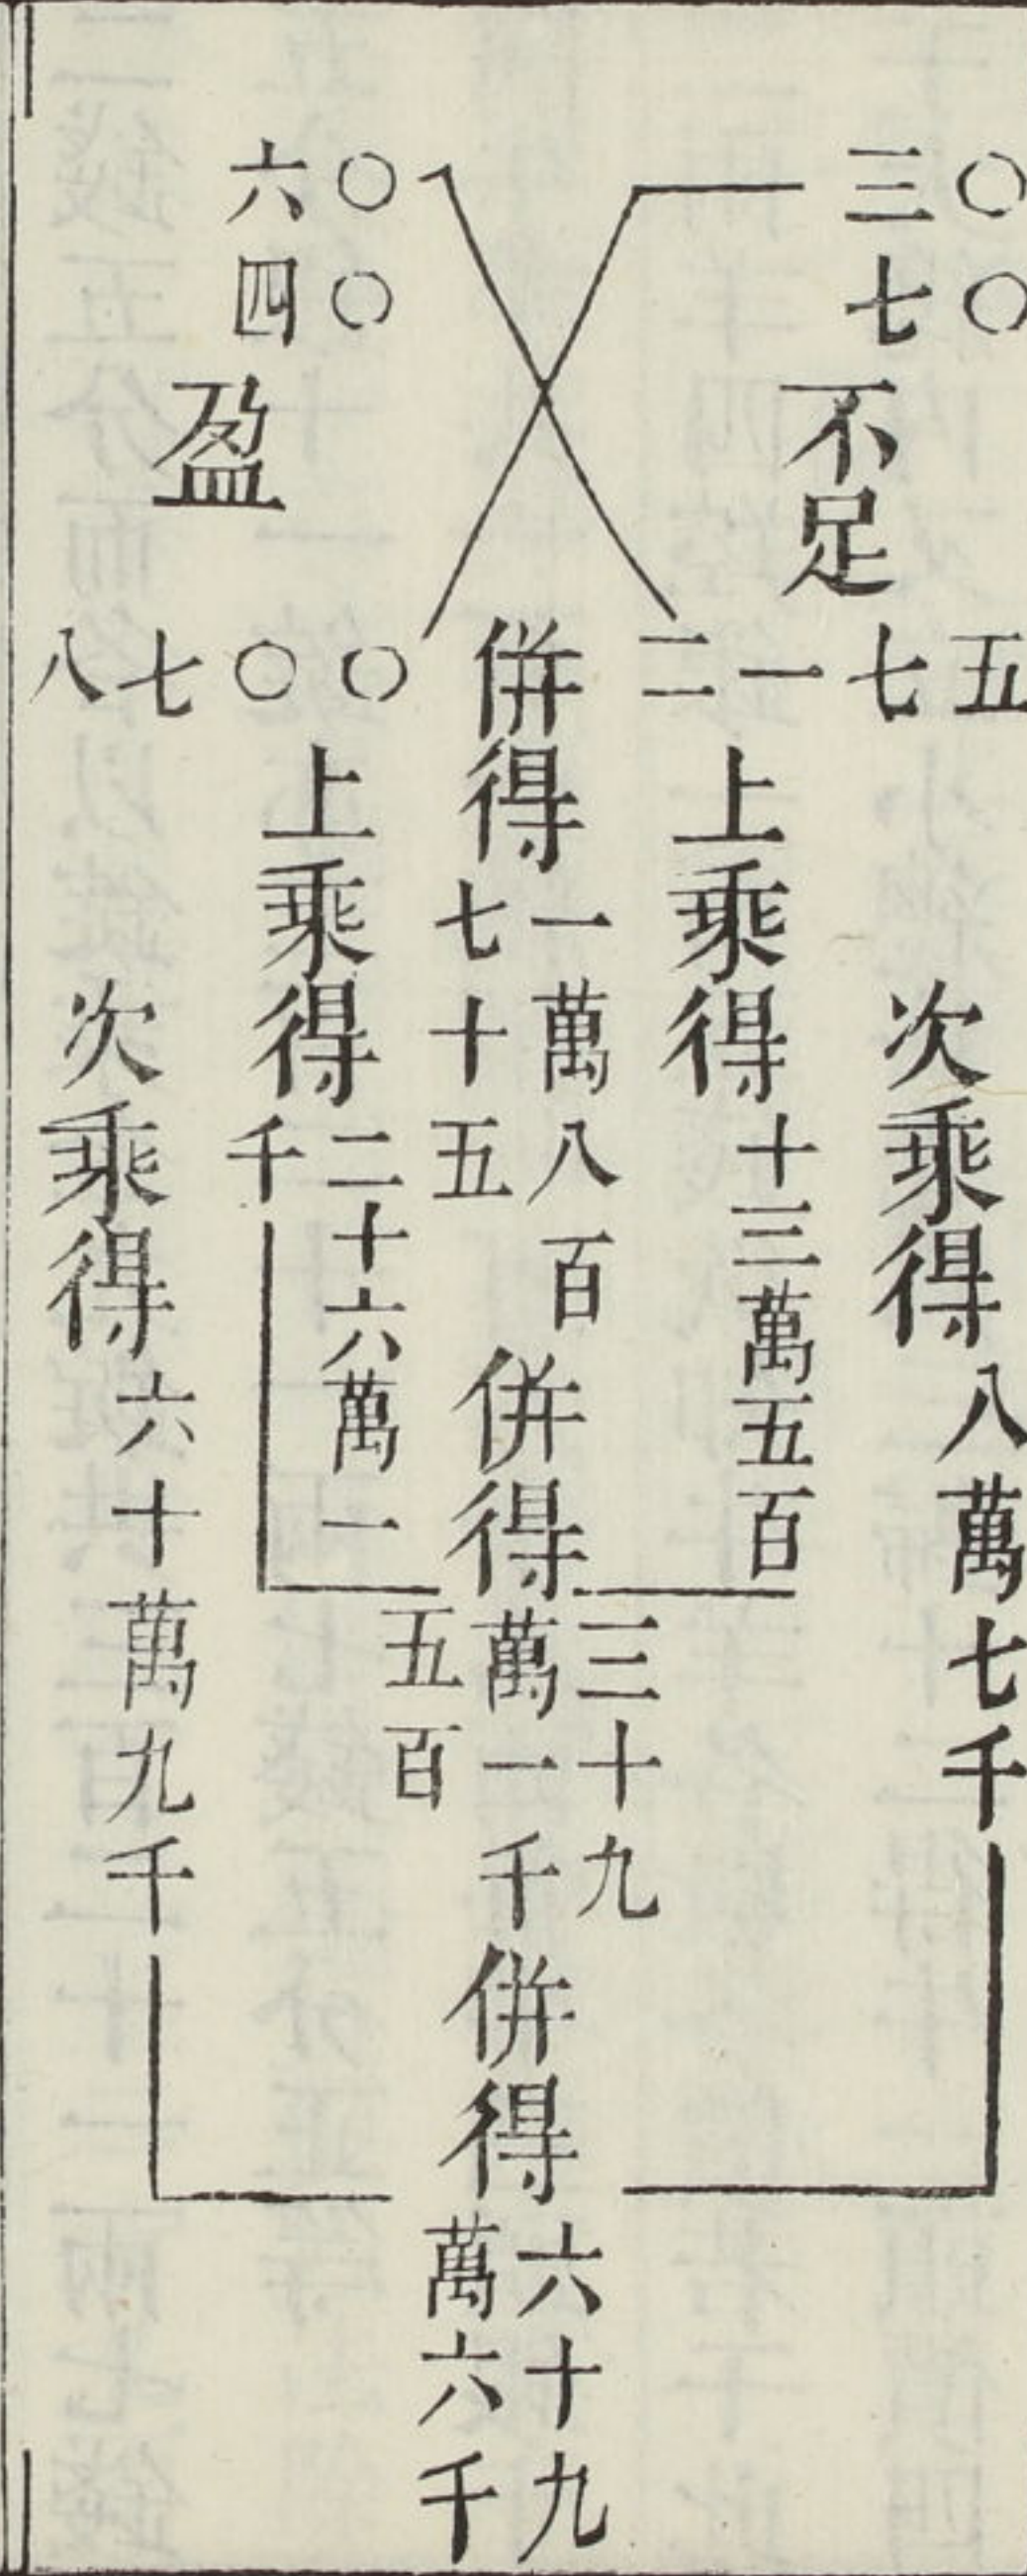 三〇
七〇
不足
二一七五
上乘得
十三萬五百
次乘得
八萬七千
併得
一萬八百
七十五
併得
三十九
萬一千
五百
併得
六十九
萬六千
六〇
四〇
盈
八七〇〇
上乘得
二十六萬一
千
次乘得
六十萬九千